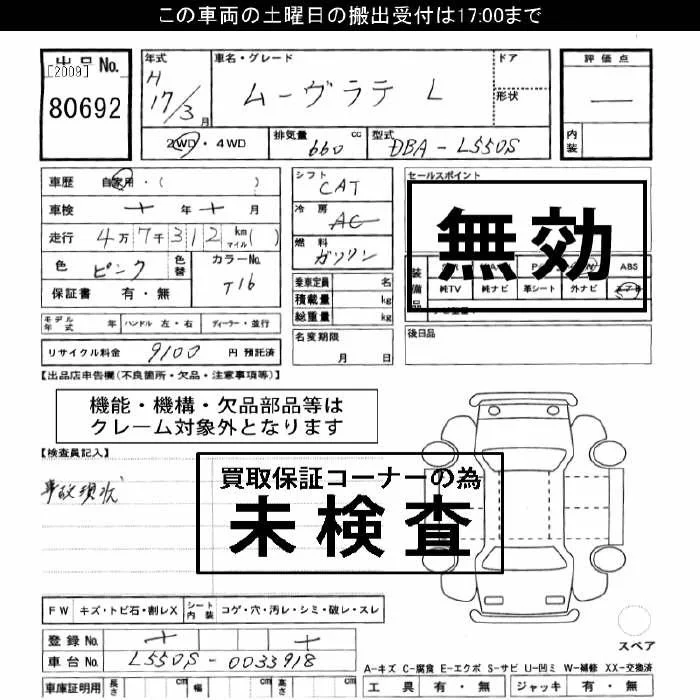 この車両の土曜日の搬出受付は17:00まで
出品No.
[2009]
80692
年式
H
17/3月
車名・グレード
ムーヴラテ L
ドア
形状
評価点
—
内装
2WD・4WD
排気量 660 cc
型式 DBA-L550S
車歴 自家用・( )
車検 年 月
走行 4万7千312 km マイル( )
色 ピンク
色替
カラーNo. T16
保証書 有・無
シフト
CAT
冷房
AC
燃料
ガソリン
乗車定員 名
積載量 kg
総重量 kg
セールスポイント
無効
装備品
ABS
純TV 純ナビ 革シート 外ナビ
モデル年式 年 ハンドル 左・右 ディーラー・並行
リサイクル料金 9100 円 預託済
名変期限
月 日
後日品
【出品店申告欄(不良箇所・欠品・注意事項等)】
機能・機構・欠品部品等は
クレーム対象外となります
【検査員記入】
事故現状
買取保証コーナーの為
未検査
FW キズ・トビ石・割レX シート内装 コゲ・穴・汚レ・シミ・破レ・スレ
登録No.
車台No. L550S-0033918
スペア
A-キズ C-腐食 E-エクボ S-サビ U-凹ミ W-補修 XX-交換済
車庫証明用 長さ cm 幅 cm 高さ cm
工具 有・無 ジャッキ 有・無